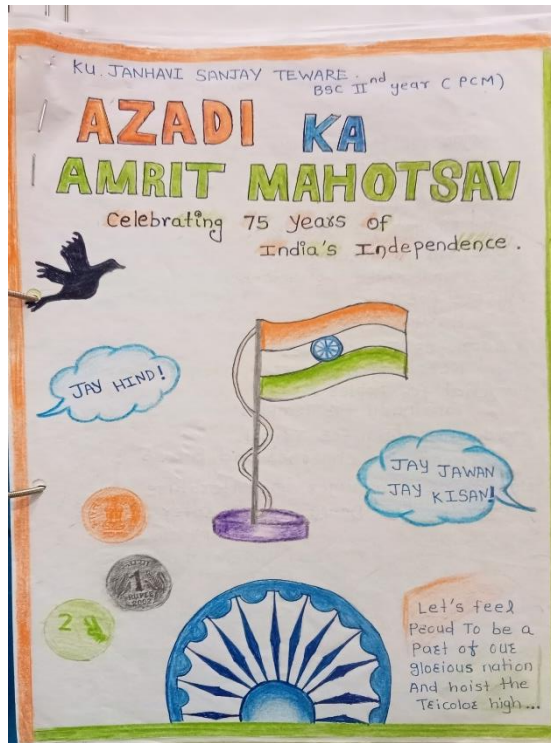 KU. JANHAVI SANJAY TEWARE.
BSC IInd year (PCM)
AZADI KA
AMRIT MAHOTSAV
Celebrating 75 years of
India's Independence.
JAY HIND!
JAY JAWAN
JAY KISAN!
1
RUPEE
2
Let's feel
Proud To be a
Part of our
glorious nation
And hoist the
Tricolor high...